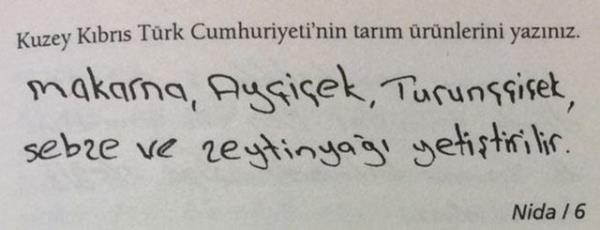 Kuzey Kıbrıs Türk Cumhuriyeti'nin tarım ürünlerini yazınız.
makarna, Ayçiçek, Turunççiçek,
sebze ve zeytinyağı yetiştirilir.
Nida / 6